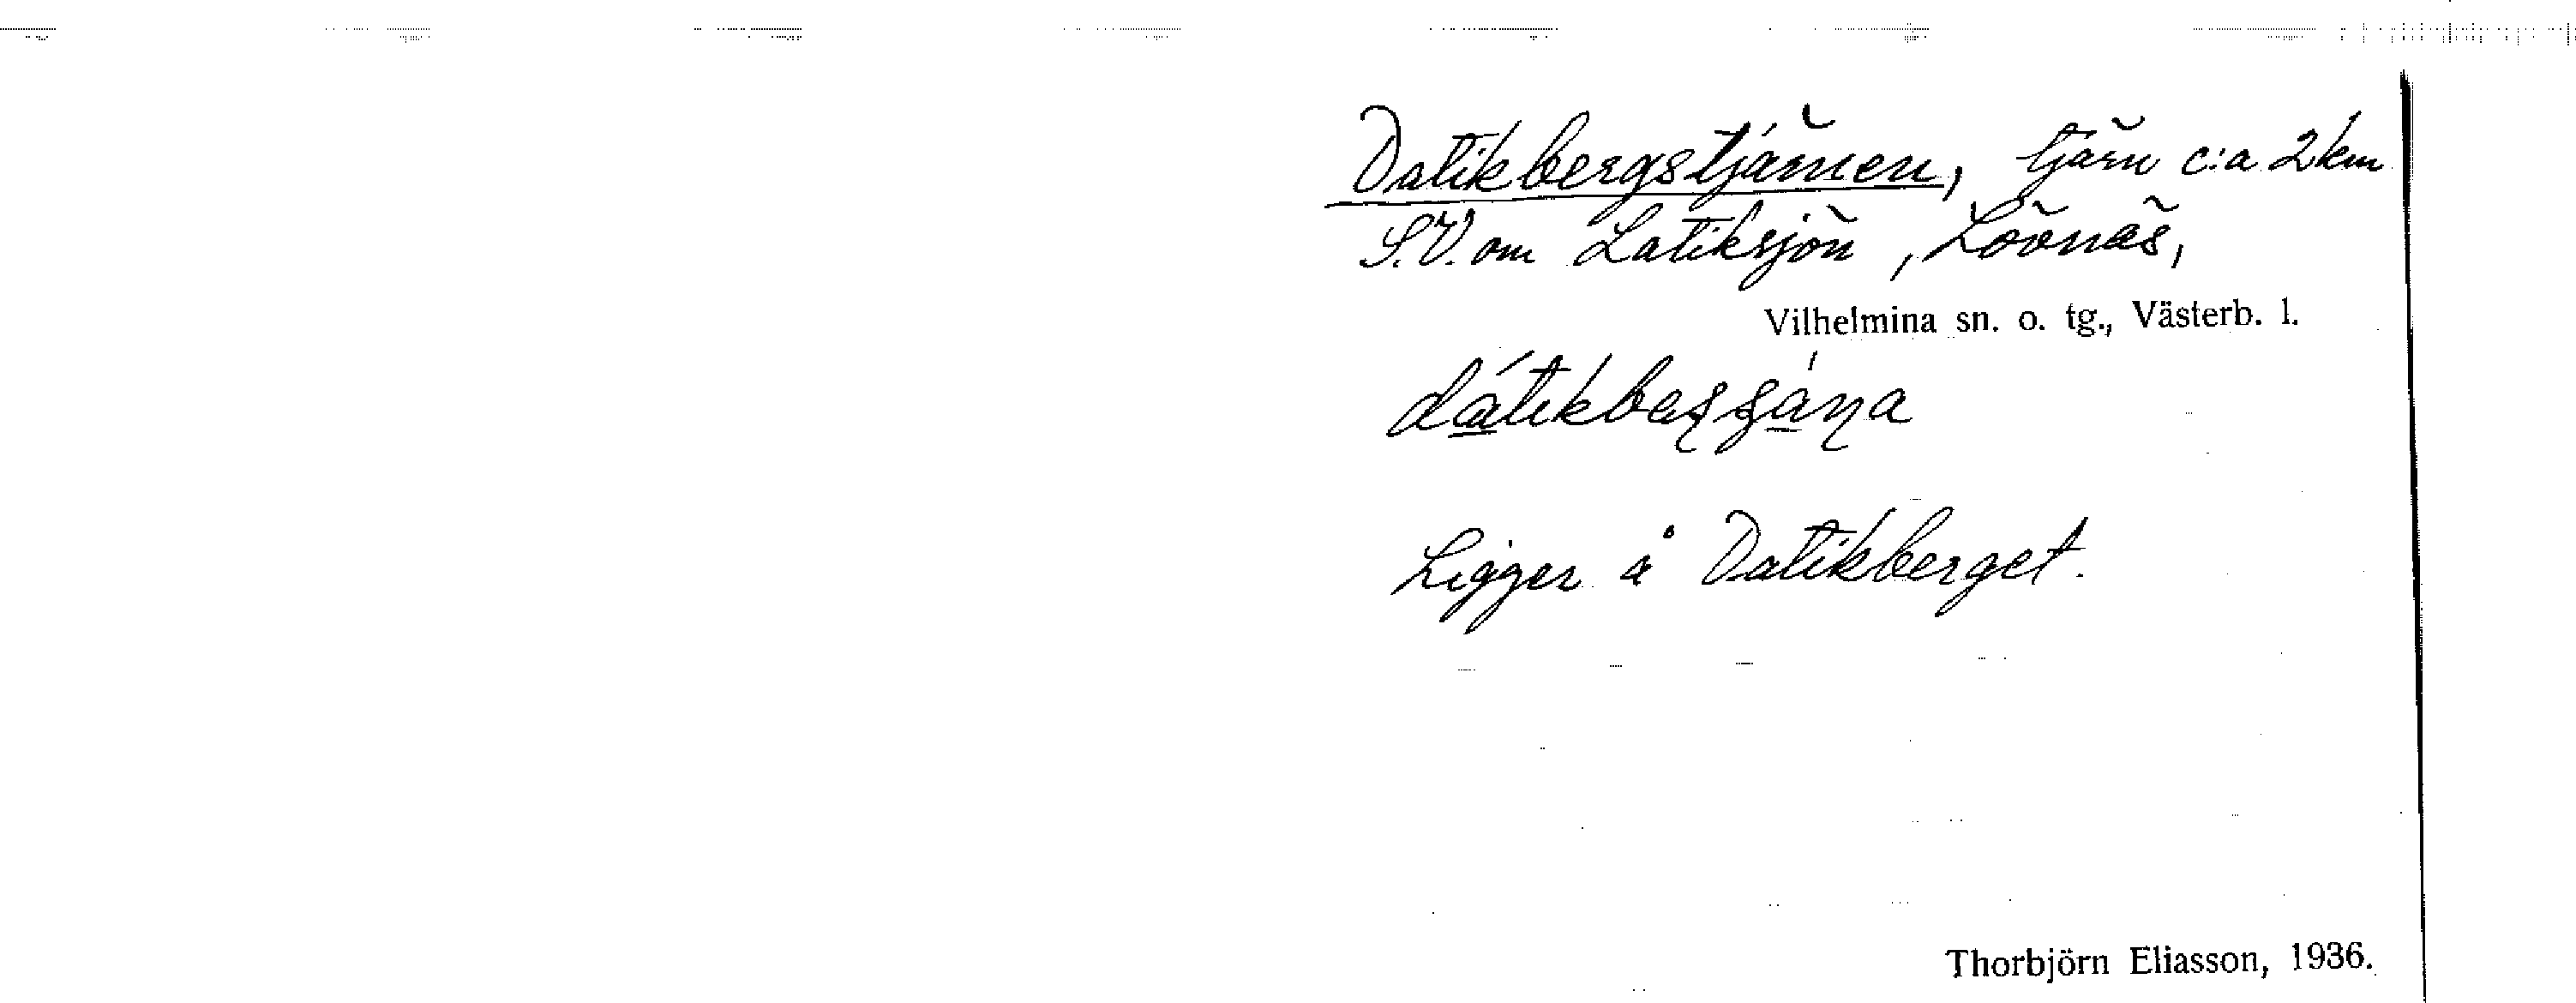 Datikbergstjärnen, tjärn c:a 2 km
S.V. om Latiksjön, Lövnäs,
Vilhelmina sn. o. tg., Västerb. l.
Ligger å Datikberget.
Thorbjörn Eliasson, 1936.